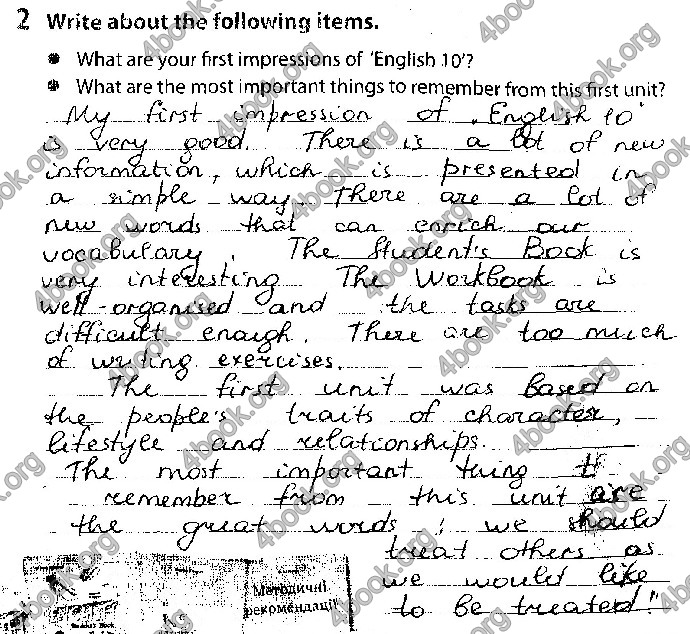 2 Write about the following items.
What are your first impressions of 'English 10'?
What are the most important things to remember from this first unit?
My first impression of „English 10"
is very good. There is a lot of new
information, which is presented in
a simple way. There are a lot of
new words that can enrich our
vocabulary. The Student's Book is
very interesting. The Workbook is
well-organised and the tasks are
difficult enough. There are too much
of writing exercises.
The first unit was based on
the people's traits of character,
lifestyle and relationships.
The most important thing to
remember from this unit are
the great words: we should
treat others as
we would like
to be treated!"
Методичні
рекомендації
4book.org